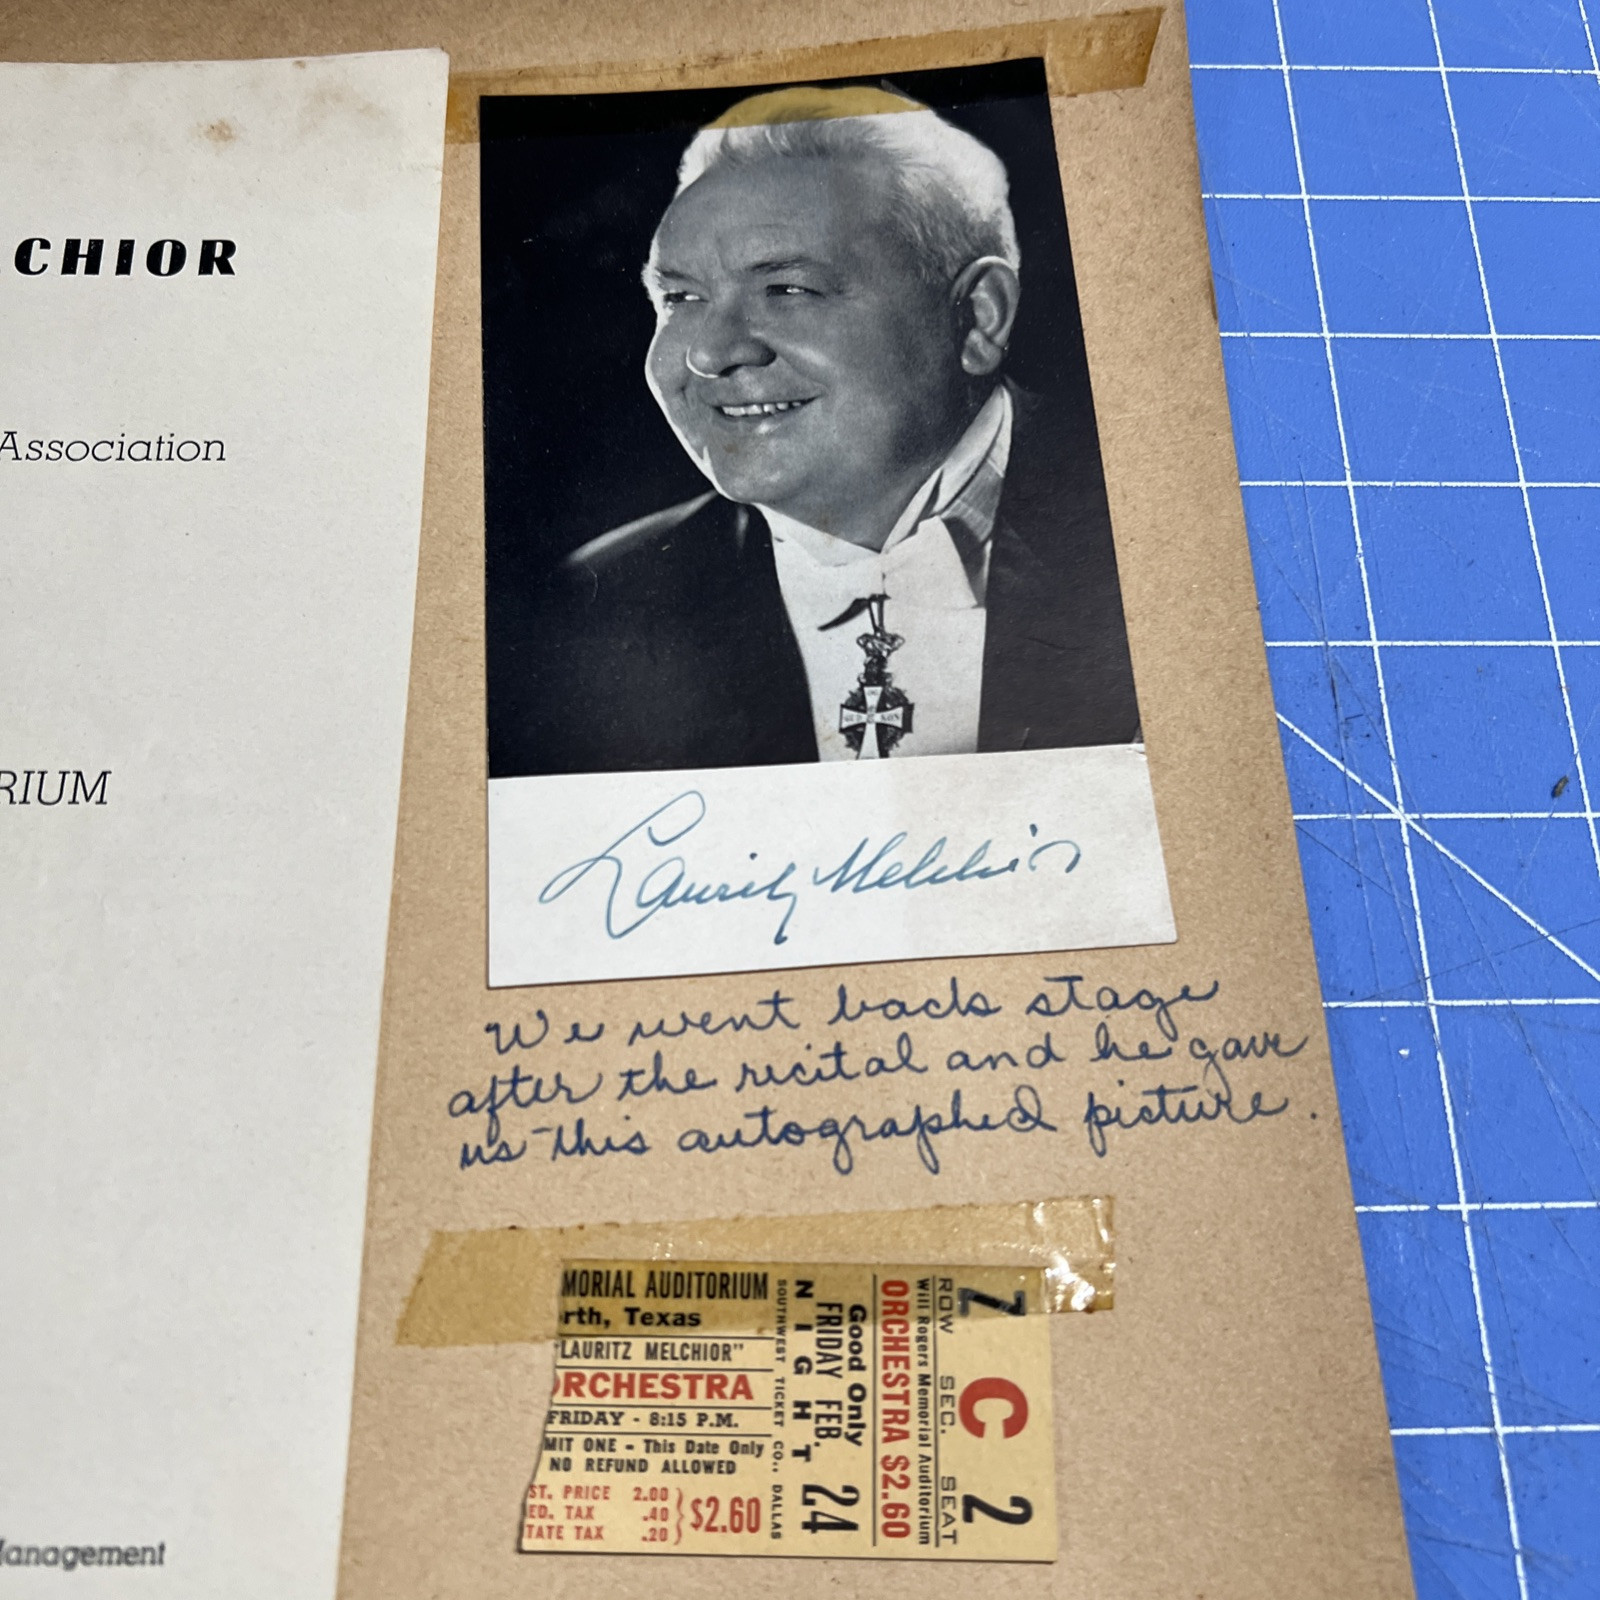 CHIOR
Association
RIUM
Management
Lauritz Melchior
We went back stage
after the recital and he gave
us this autographed picture.
MORIAL AUDITORIUM
rth, Texas
"LAURITZ MELCHIOR"
ORCHESTRA
FRIDAY - 8:15 P.M.
MIT ONE - This Date Only
NO REFUND ALLOWED
ST. PRICE 2.00
ED. TAX .40
TATE TAX .20
$2.60
SOUTHWEST TICKET CO., DALLAS
NIGHT
FRIDAY FEB. 24
Good Only
ORCHESTRA $2.60
Will Rogers Memorial Auditorium
ROW SEC. SEAT
Z C 2